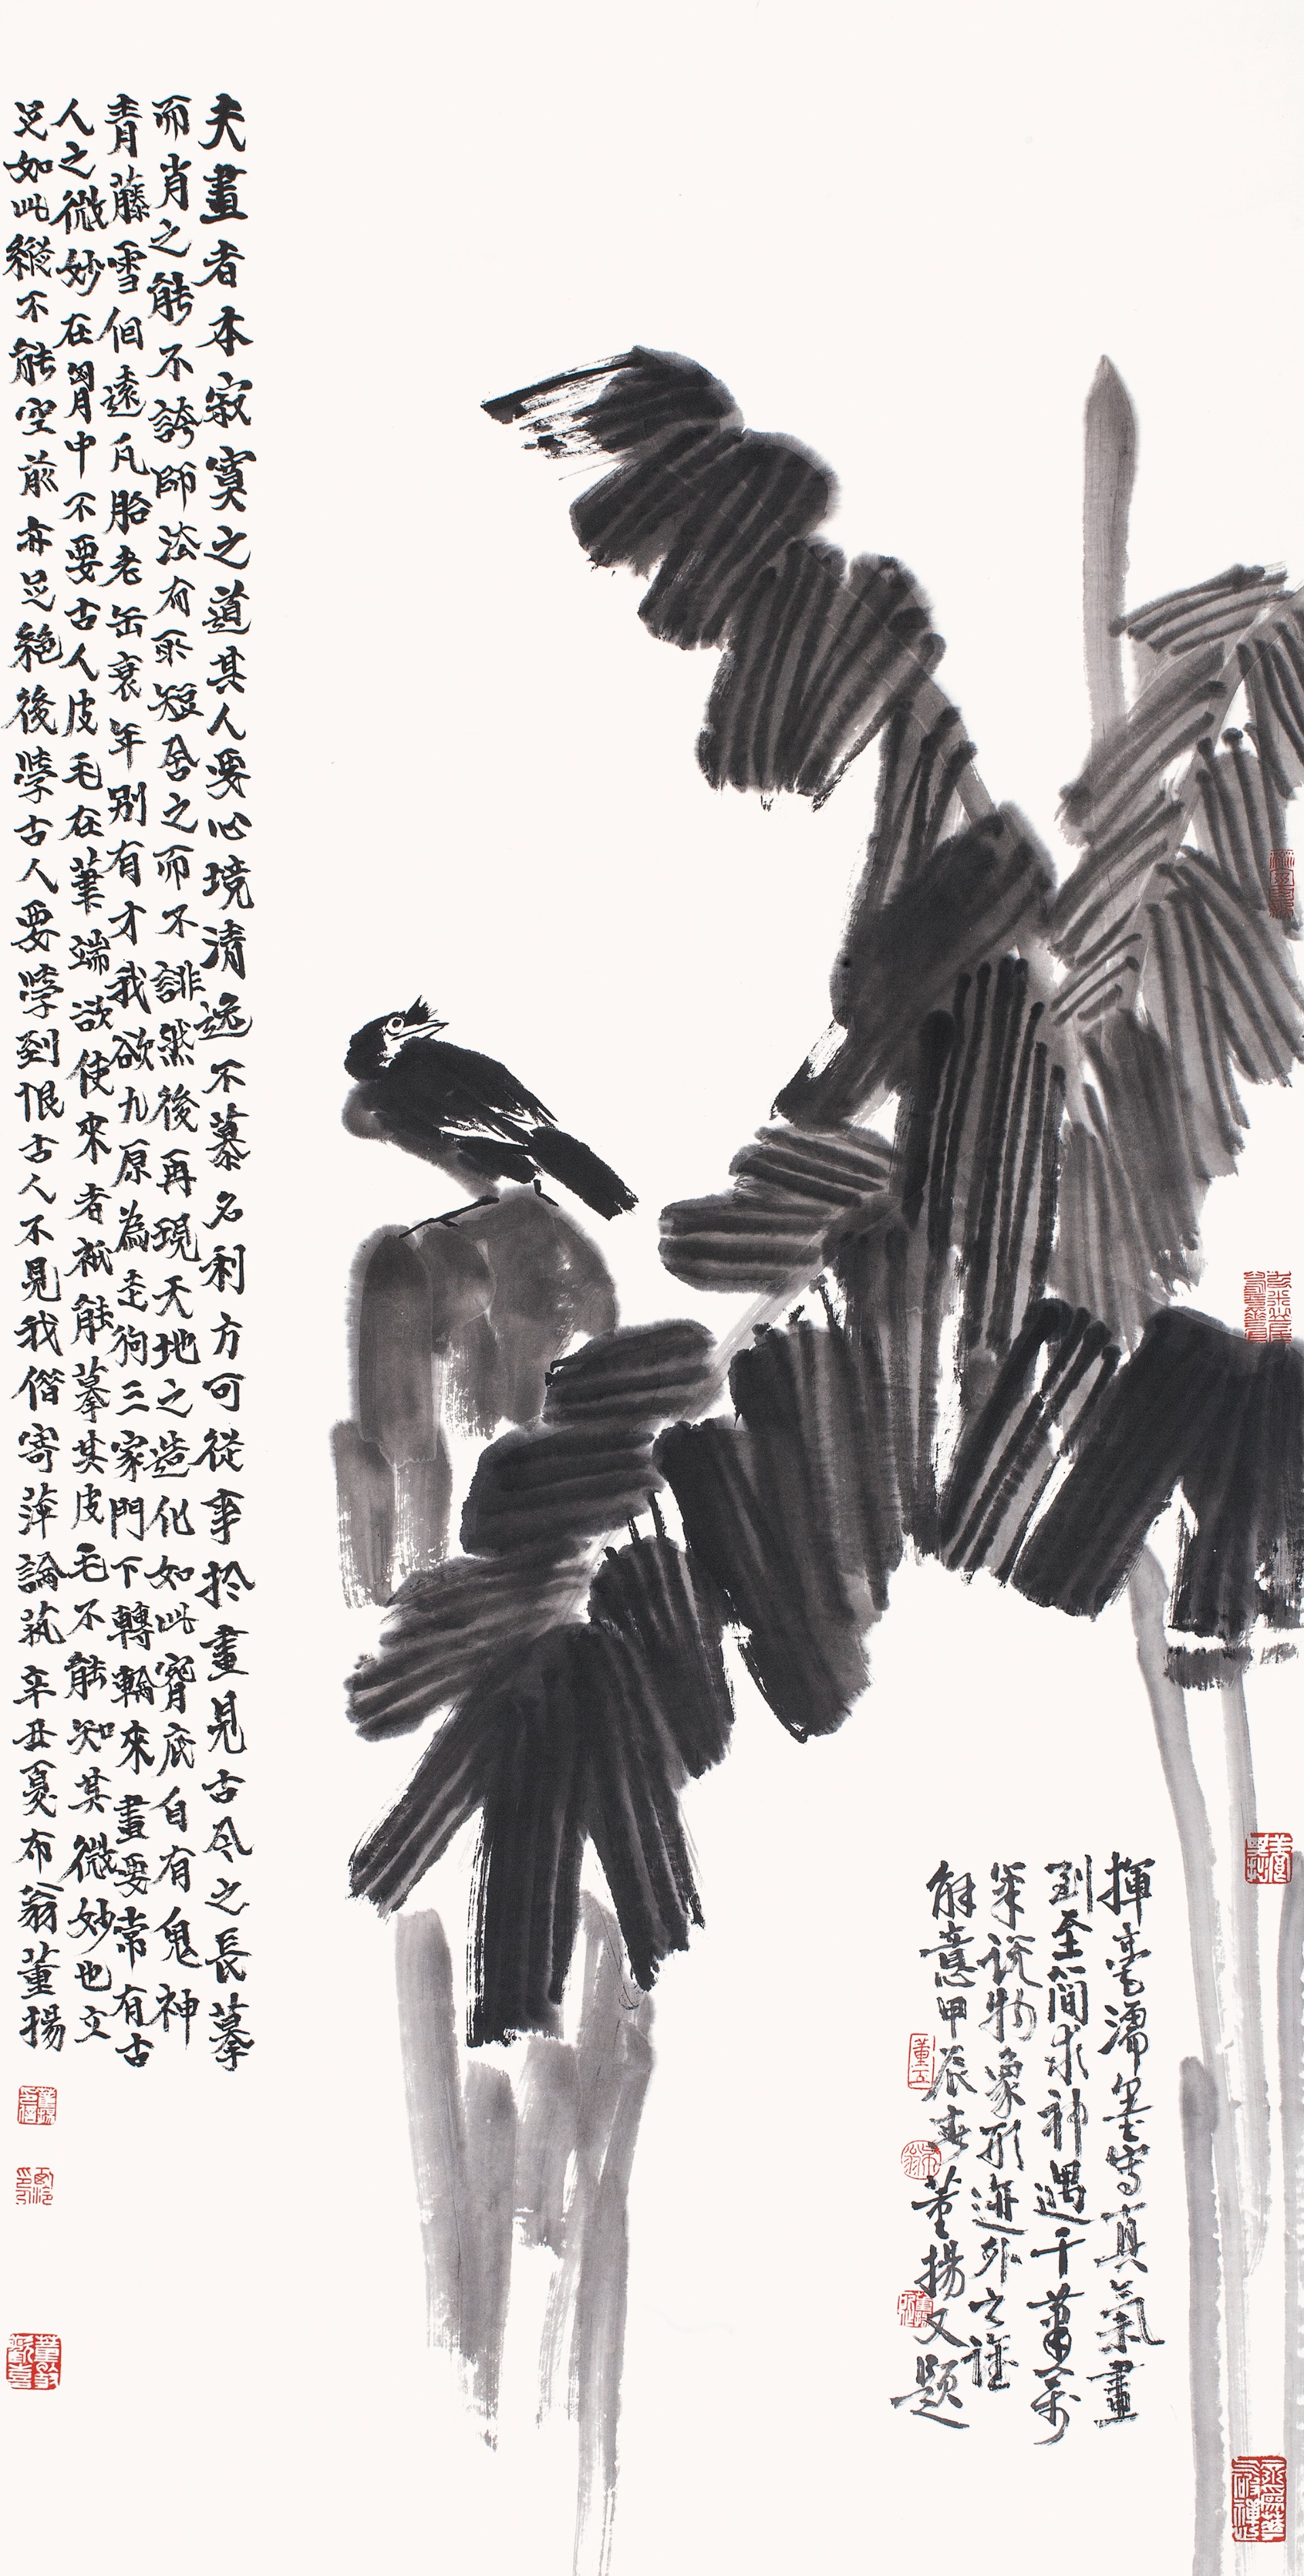 夫畫者本寂寞之道其人要心境清逸不慕名利方可從事於畫見古今之長摹
而肖之能不誇師法有所短舍之而不誹然後再現天地之造化如此腕底自有鬼神
青藤雪個遠凡胎老缶衰年別有才我欲九原為走狗三家門下轉輪來畫要常有古
人之微妙在胸中不要古人皮毛在筆端欲使來者祇能摹其皮毛不能知其微妙也立
足如此縱不能空前亦足絕後學古人要學到恨古人不見我偕寄萍論藝辛丑夏布翁董揚
揮毫濡墨寫真氣畫
到至簡求神遇千筆萬
筆説物象形迹外之誰
解意甲辰春董揚又題